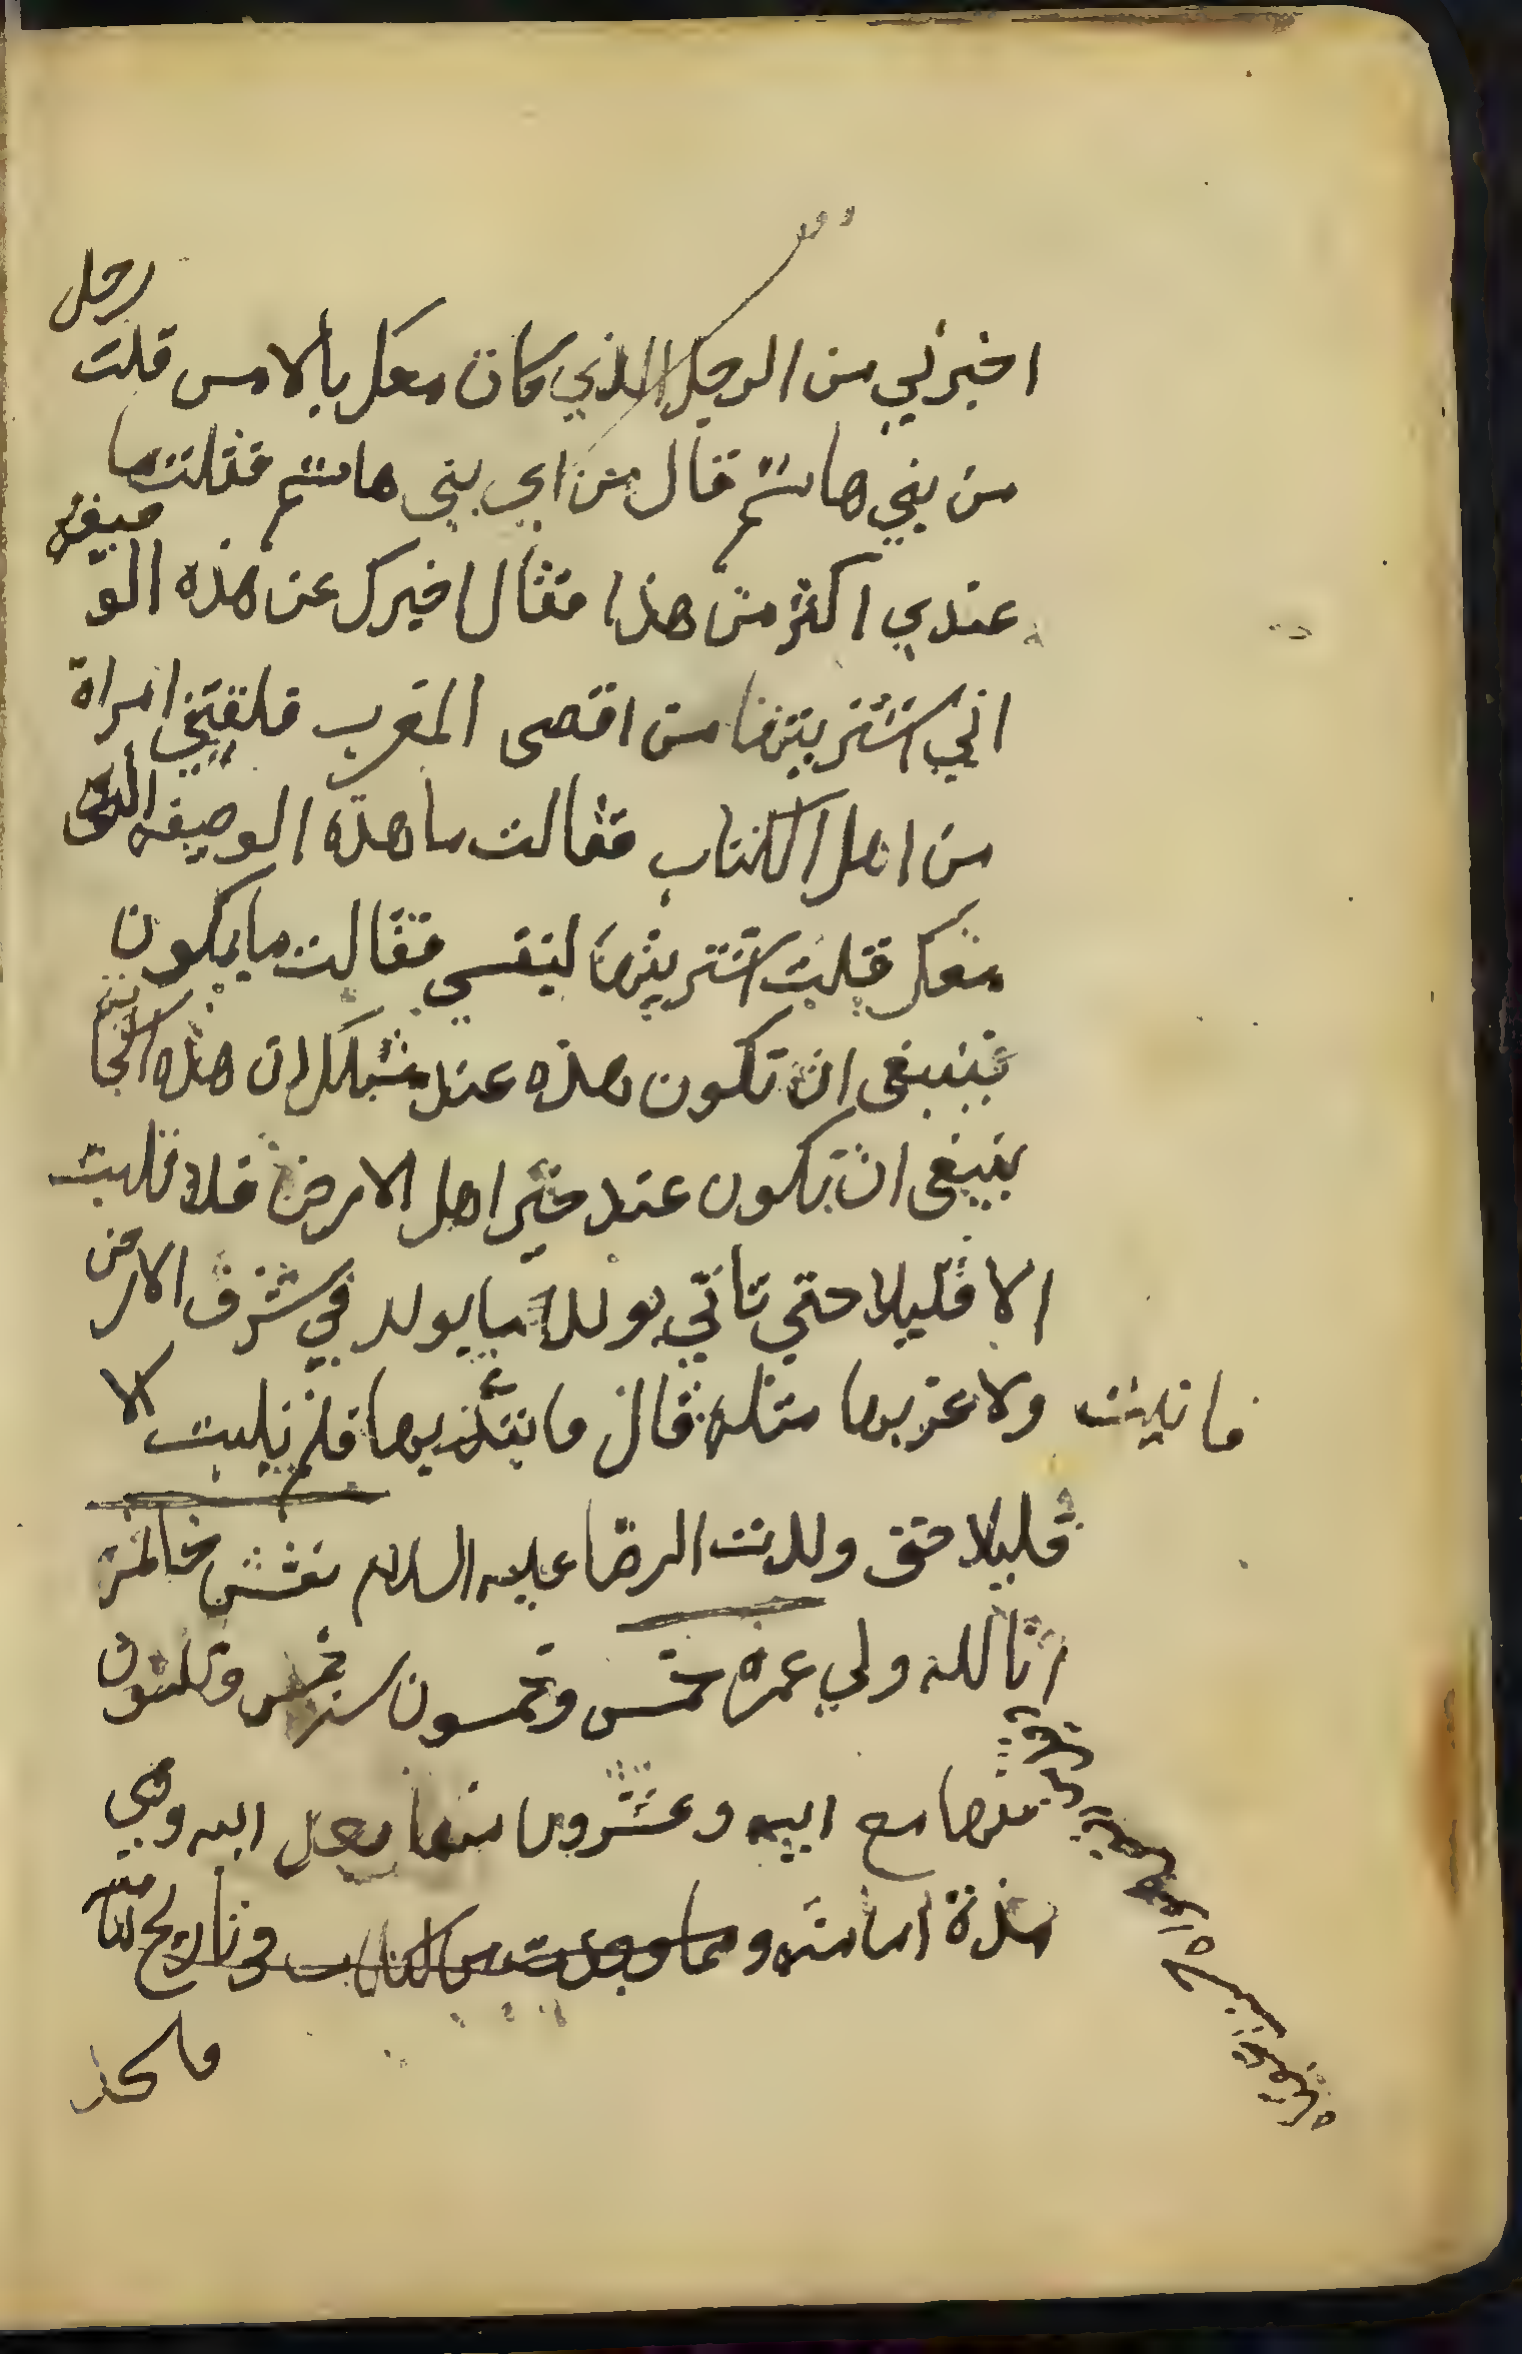 اخبرني من الرجل الذي كان معك بالامس قلت رجل
من بني هاشم قال من اي بني هاشم فقلت ما
عندي اكثر من هذا فقال اخبرك عن هذه الوصيفة
اني اشتريتها من اقصى المغرب فلقيتني امراة
من اهل الكتاب فقالت ما هذه الوصيفه التي
معك قلت اشتريتها لنفسي فقالت ما يكون
ينبغي ان تكون هذه عند مثلك ان هذه الجارية
ينبغي ان تكون عند خير اهل الارض فلا تلبث
الا قليلا حتي تاتي بولد ما يولد في شرق الارض
ولا غربها مثله قال فاتيته بها فلم تلبث الا
قليلا حتى ولدت الرضا عليه السلام نقش خاتمه
انا لله ولي عمره خمس وخمسون سنة خمس وثلثون
منها مع ابيه وعشرون منها بعد ابيه وهي
مدة امامته ومما وجدت من الكتاب في تاريخ